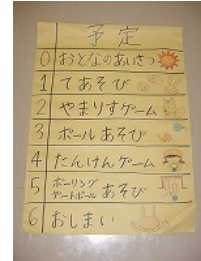 予定
0 おとなのあいさつ
1 てあそび
2 やまりすゲーム
3 ボールあそび
4 たんけんゲーム
5 ボーリング
ゲートボール あそび
6 おしまい